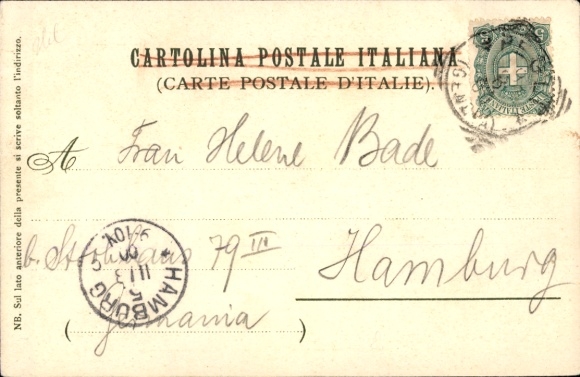 CARTOLINA POSTALE ITALIANA
(CARTE POSTALE D'ITALIE).
A Frau Helene Bade
b. Strohhaus 79 III
Hamburg
(Germania)
HAMBURG
5
11 13
00
NB. Sul lato anteriore della presente si scrive soltanto l'indirizzo.